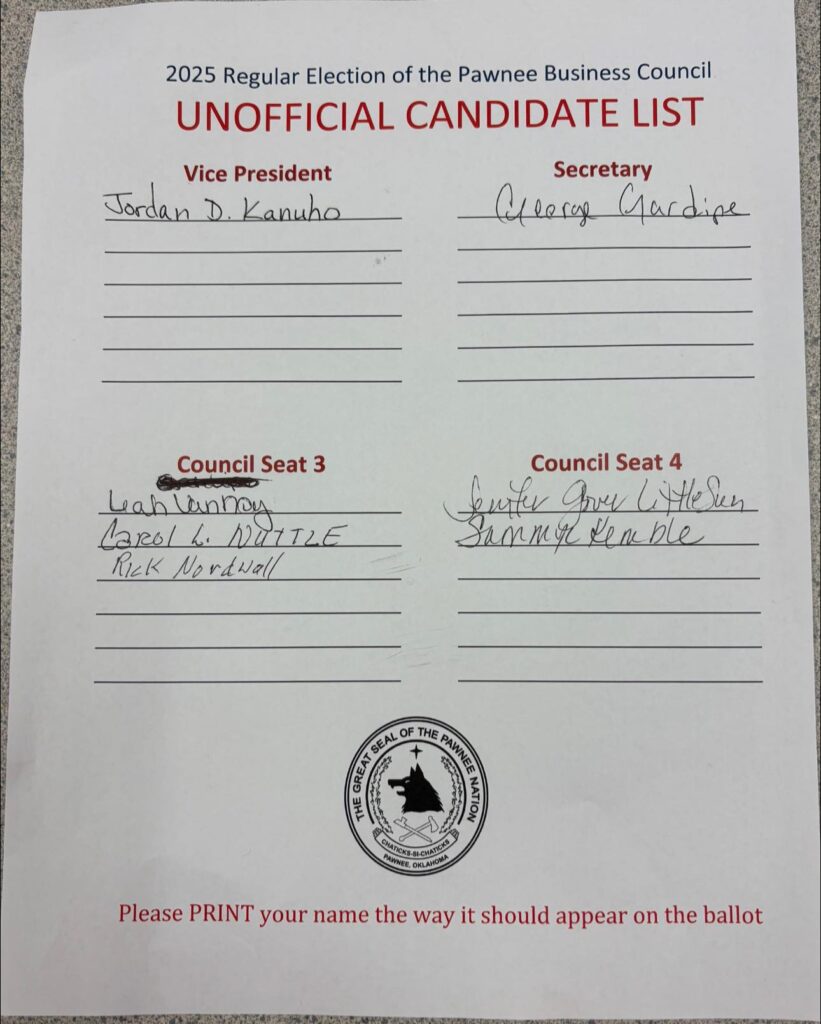 2025 Regular Election of the Pawnee Business Council
UNOFFICIAL CANDIDATE LIST
Vice President
Jordan D. Kanuho
Secretary
George Gardipe
Council Seat 3
Leah Vannoy
CAROL L. NUTTLE
RICK Nordwall
Council Seat 4
Jenifer Gover LittleSun
Sammye Kemble
THE GREAT SEAL OF THE PAWNEE NATION
CHATICKS-SI-CHATICKS
PAWNEE, OKLAHOMA
Please PRINT your name the way it should appear on the ballot